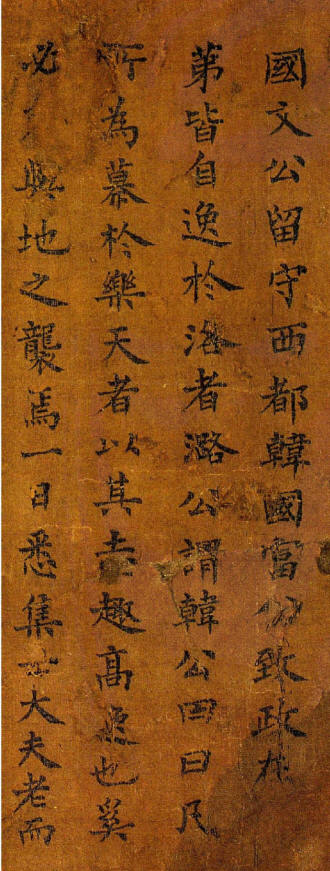 國文公留守西都韓國富公致政在
第皆自逸於洛者潞公謂韓公曰凡
所為慕於樂天者以其志趣高逸也奚
必與地之襲焉一日悉集士大夫老而